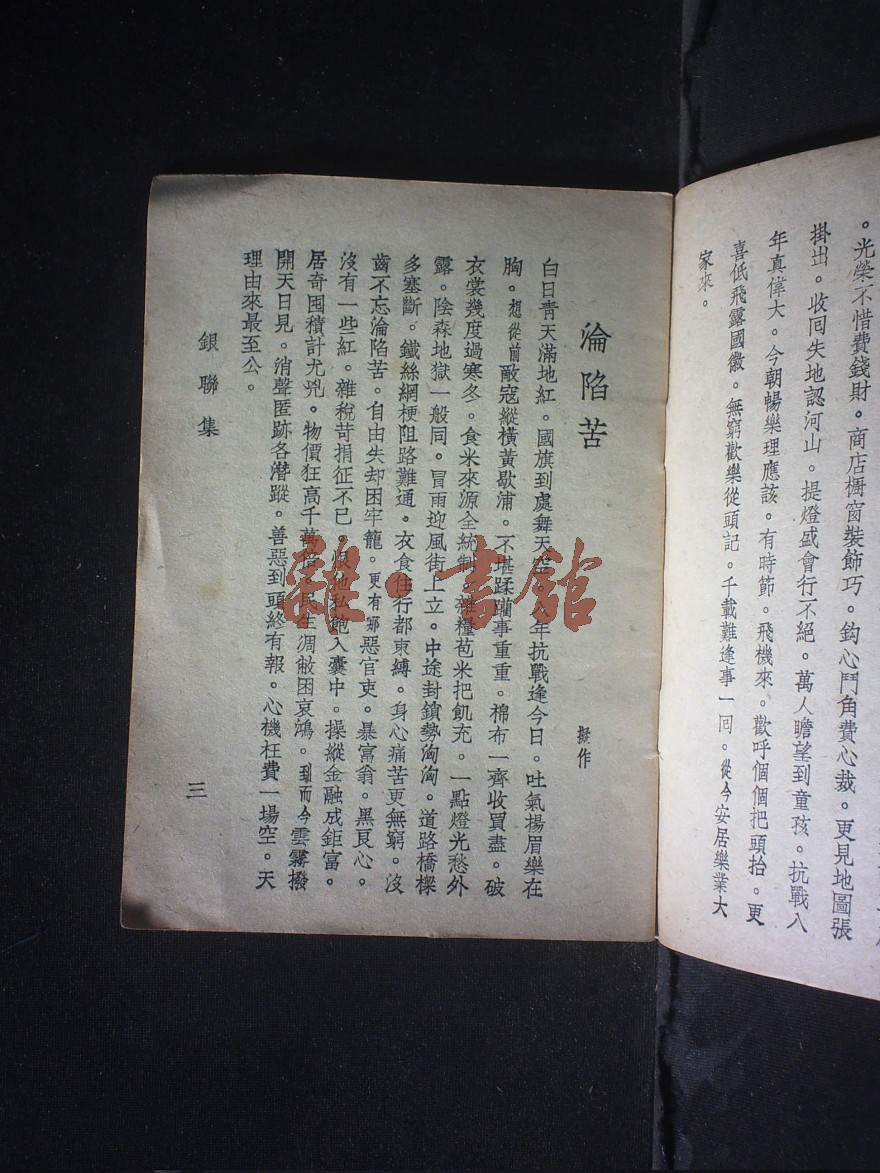 。光榮不惜費錢財。商店櫥窗裝飾巧。鈎心鬥角費心裁。更見地圖張
掛出。收囘失地認河山。提燈盛會行不絕。萬人瞻望到童孩。抗戰入
年真偉大。今朝暢樂理應該。有時節。飛機來。歡呼個個把頭抬。更
喜低飛露國徽。無窮歡樂從頭記。千載難逢事一囘。從今安居樂業大
家來。
淪陷苦
擬作
白日靑天滿地紅。國旗到處舞天空。八年抗戰逢今日。吐氣揚眉樂在
胸。想從前敵寇縱橫黃歇浦。不堪蹂躪事重重。棉布一齊收買盡。破
衣裳幾度過寒冬。食米來源全統制。雜糧苞米把飢充。一點燈光愁外
露。陰森地獄一般同。冒雨迎風街上立。中途封鎖勢洶洶。道路橋樑
多塞斷。鐵絲網梗阻路難通。衣食住行都束縛。身心痛苦更無窮。沒
齒不忘淪陷苦。自由失却困牢籠。更有郍惡官吏。暴富翁。黑良心。
沒有一些紅。雜稅苛捐征不已。恨他私飽入囊中。操縱金融成鉅富。
居奇囤積計尤兇。物價狂高千萬倍。民生凋敝困哀鴻。到而今雲霧撥
開天日見。消聲匿跡各潛蹤。善惡到頭終有報。心機枉費一場空。天
理由來最至公。
銀聯集
三
雜·書館